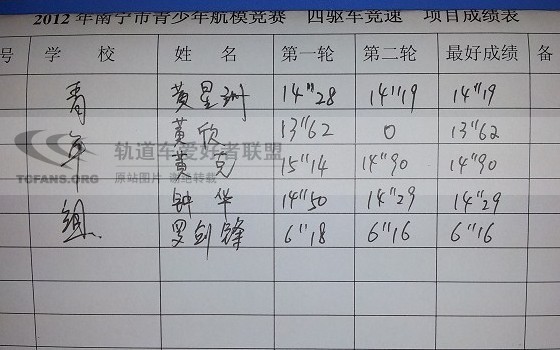 2012年南宁市青少年航模竞赛 四驱车竞速 项目成绩表
号 学 校 姓 名 第一轮 第二轮 最好成绩 备
青 黄星洲 14"28 14"19 14"19
年 黄欣 13"62 0 13"62
黄克 15"14 14"90 14"90
钟华 14"50 14"29 14"29
组 罗剑锋 6"18 6"16 6"16
轨道车爱好者联盟
TCFANS.ORG 原站图片 谢绝转载